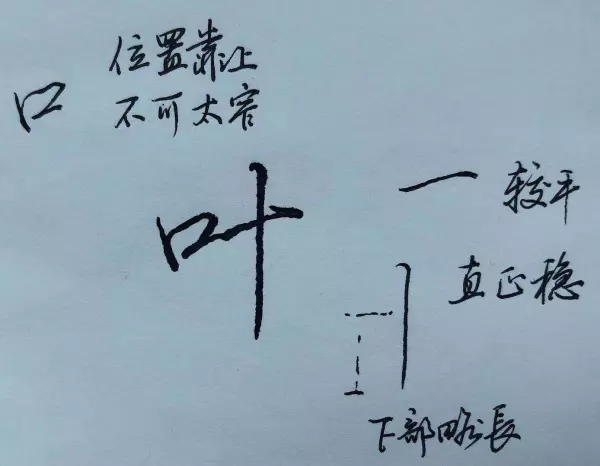 位置靠让
口
不可太
一 较平
叶
直正稳
下部略長